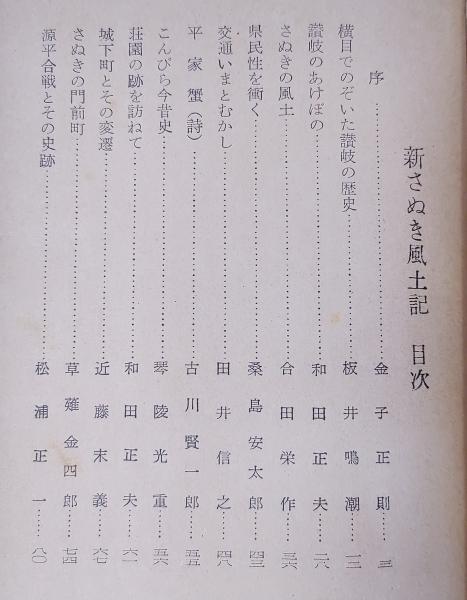 新さぬき風土記　目次
序……………金子正則……三
横目でのぞいた讃岐の歴史……………板井鳴潮……一三
讃岐のあけぼの……………和田正夫……二八
さぬきの風土……………合田栄作……三六
県民性を衝く……………桑島安太郎……四三
交通いまとむかし……………田井信之……四八
平家蟹（詩）……………古川賢一郎……五五
こんぴら今昔史……………琴陵光重……五六
荘園の跡を訪ねて……………和田正夫……六一
城下町とその変遷……………近藤末義……六七
さぬきの門前町……………草薙金四郎……七四
源平合戦とその史跡……………松浦正一……八〇